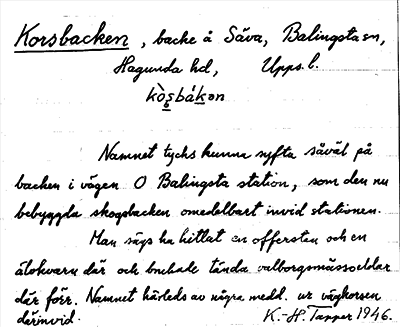 Korsbacken, backe å Säva, Balingsta sn,
Hagunda hd, Upps. l.
kòsbákən
Namnet tycks kunna syfta såväl på
backen i vägen O Balingsta station, som den nu
bebyggda skogsbacken omedelbart invid stationen.
Man sägs ha hittat en offersten och en
älvkvarn där och brukade tända valborgsmässoeldar
där förr. Namnet härleds av några medd. ur vägkorsen
därinvid. K.-H. Tapper 1946.